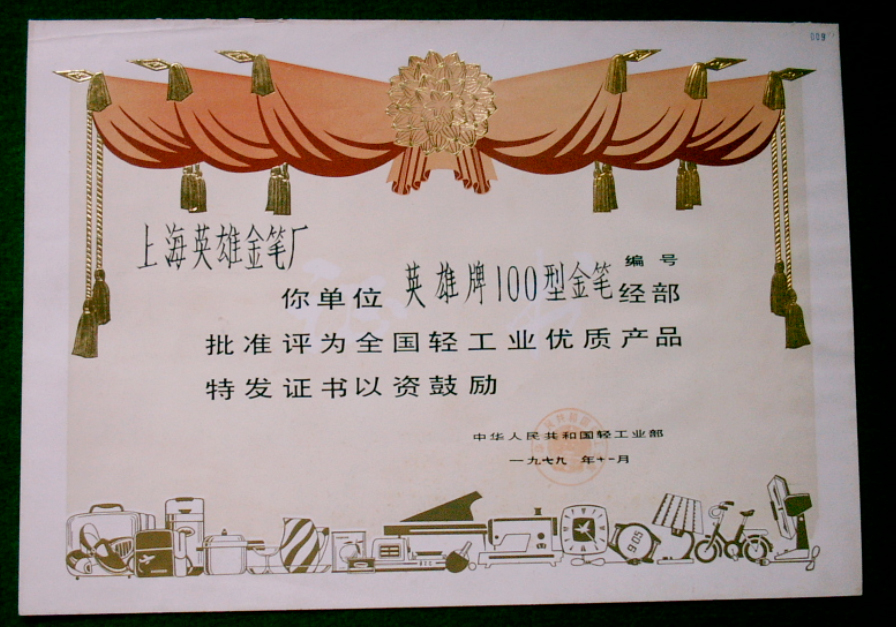 009
上海英雄金笔厂
编号
你单位 英雄牌100型金笔 经部
批准评为全国轻工业优质产品
特发证书以资鼓励
中华人民共和国轻工业部
一九七九 年十一月